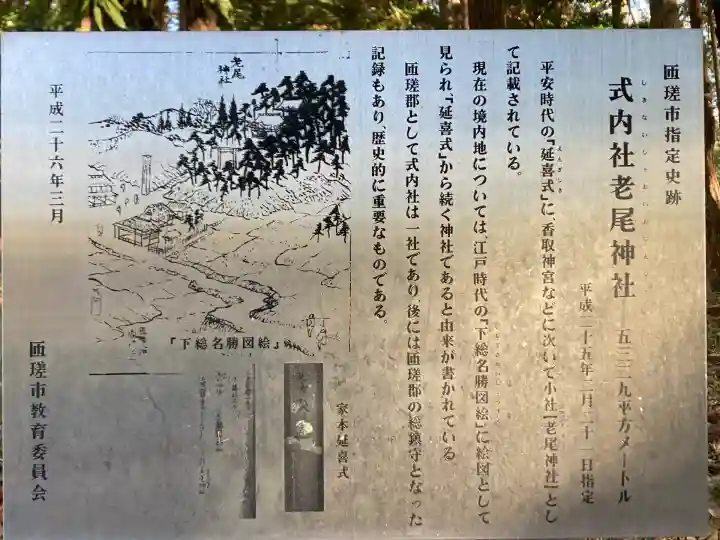 匝瑳市指定史跡
式内社老尾神社
しきないしゃおいおじんじゃ
五三二九平方メートル
平成二十五年二月二十一日指定
平安時代の『延喜式』に、香取神宮などに次いで小社「老尾神社」とし
えんぎしき
て記載されている。
現在の境内地については、江戸時代の『下総名勝図絵』に絵図として
見られ『延喜式』から続く神社であると由来が書かれている
匝瑳郡として式内社は一社であり、後には匝瑳郡の総鎮守となった
記録もあり、歴史的に重要なものである。
老尾
神社
『下総名勝図絵』
家本延喜式
平成二十六年三月
匝瑳市教育委員会